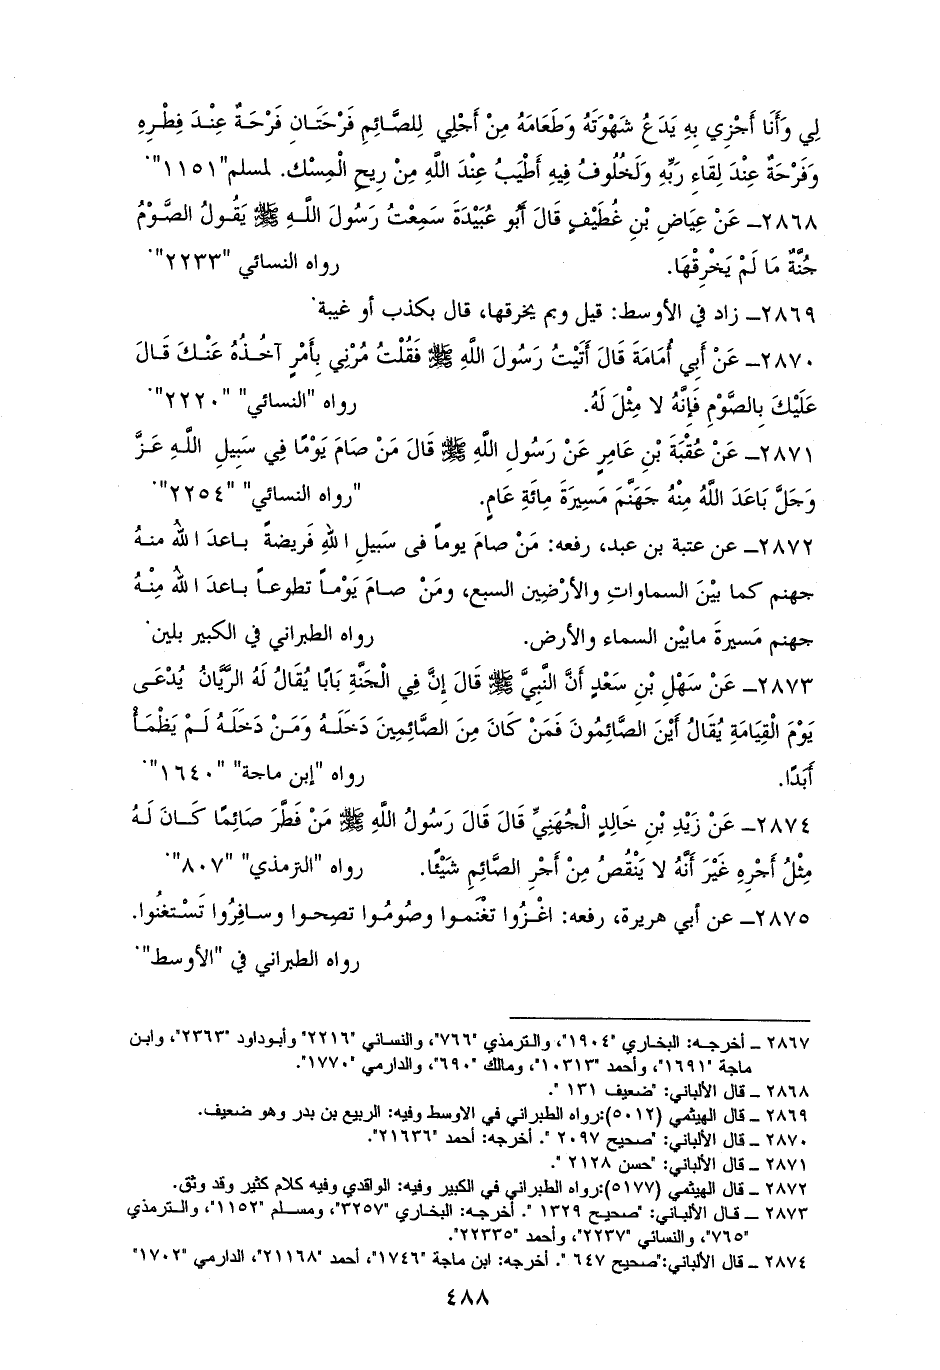 لِي وَأَنَا أَجْزِي بِهِ يَدَعُ شَهْوَتَهُ وَطَعَامَهُ مِنْ أَجْلِي لِلصَّائِمِ فَرْحَتَانِ فَرْحَةٌ عِنْدَ فِطْرِهِ
وَفَرْحَةٌ عِنْدَ لِقَاءِ رَبِّهِ وَلَخُلُوفُ فِيهِ أَطْيَبُ عِنْدَ اللَّهِ مِنْ رِيحِ الْمِسْكِ. لمسلم"١١٥١".
٢٨٦٨ـ عَنْ عِيَاضِ بْنِ غُطَيْفٍ قَالَ أَبُو عُبَيْدَةَ سَمِعْتُ رَسُولَ اللَّهِ ﷺ يَقُولُ الصَّوْمُ
جُنَّةٌ مَا لَمْ يَخْرِقْهَا. رواه النسائي "٢٢٣٣".
٢٨٦٩ـ زاد في الأوسط: قيل وبم يخرقها، قال بكذب أو غيبة.
٢٨٧٠ـ عَنْ أَبِي أُمَامَةَ قَالَ أَتَيْتُ رَسُولَ اللَّهِ ﷺ فَقُلْتُ مُرْنِي بِأَمْرٍ آخُذُهُ عَنْكَ قَالَ
عَلَيْكَ بِالصَّوْمِ فَإِنَّهُ لا مِثْلَ لَهُ. رواه "النسائي" "٢٢٢٠".
٢٨٧١ـ عَنْ عُقْبَةَ بْنِ عَامِرٍ عَنْ رَسُولِ اللَّهِ ﷺ قَالَ مَنْ صَامَ يَوْمًا فِي سَبِيلِ اللَّهِ عَزَّ
وَجَلَّ بَاعَدَ اللَّهُ مِنْهُ جَهَنَّمَ مَسِيرَةَ مِائَةِ عَامٍ. "رواه النسائي" "٢٢٥٤".
٢٨٧٢ـ عن عتبة بن عبد، رفعه: مَنْ صامَ يوماً فى سَبيلِ اللهِ فَريضةً باعدَ اللهُ منهُ
جهنم كما بيْنَ السماواتِ والأرْضِين السبع، ومَنْ صامَ يَوْماً تطوعاً باعدَ اللهُ مِنْهُ
جهنم مَسيرةَ مابيْن السماء والأرض. رواه الطبراني في الكبير بلين.
٢٨٧٣ـ عَنْ سَهْلِ بْنِ سَعْدٍ أَنَّ النَّبِيَّ ﷺ قَالَ إِنَّ فِي الْجَنَّةِ بَابًا يُقَالُ لَهُ الرَّيَّانُ يُدْعَى
يَوْمَ الْقِيَامَةِ يُقَالُ أَيْنَ الصَّائِمُونَ فَمَنْ كَانَ مِنَ الصَّائِمِينَ دَخَلَهُ وَمَنْ دَخَلَهُ لَمْ يَظْمَأْ
أَبَدًا. رواه "إبن ماجة" "١٦٤٠".
٢٨٧٤ـ عَنْ زَيْدِ بْنِ خَالِدٍ الْجُهَنِيِّ قَالَ قَالَ رَسُولُ اللَّهِ ﷺ مَنْ فَطَّرَ صَائِمًا كَانَ لَهُ
مِثْلُ أَجْرِهِ غَيْرَ أَنَّهُ لا يَنْقُصُ مِنْ أَجْرِ الصَّائِمِ شَيْئًا. رواه "الترمذي" "٨٠٧".
٢٨٧٥ـ عن أبي هريرة، رفعه: اغْزُوا تغْنَموا وصُومُوا تصِحوا وسافِرُوا تَسْتغنُوا.
رواه الطبراني في "الأوسط".
٢٨٦٧ ـ أخرجه: البخاري "١٩٠٤"، والترمذي "٧٦٦"، والنسائي "٢٢١٦" وأبوداود "٢٣٦٣"، وابن
ماجة "١٦٩١"، وأحمد "١٠٣١٣"، ومالك "٦٩٠"، والدارمي "١٧٧٠".
٢٨٦٨ ـ قال الألباني: "ضعيف ١٣١ ".
٢٨٦٩ ـ قال الهيثمي (٥٠١٢):رواه الطبراني في الاوسط وفيه: الربيع بن بدر وهو ضعيف.
٢٨٧٠ ـ قال الألباني: "صحيح ٢٠٩٧ ". أخرجه: أحمد "٢١٦٣٦".
٢٨٧١ ـ قال الألباني: "حسن ٢١٢٨ ".
٢٨٧٢ ـ قال الهيثمي (٥١٧٧):رواه الطبراني في الكبير وفيه: الواقدي وفيه كلام كثير وقد وثق.
٢٨٧٣ ـ قال الألباني: "صحيح ١٣٢٩ ". أخرجه: البخاري "٣٢٥٧"، ومسلم "١١٥٢"، والترمذي
"٧٦٥"، والنسائي "٢٢٣٧"، وأحمد "٢٢٣٣٥".
٢٨٧٤ ـ قال الألباني:"صحيح ٦٤٧ ". أخرجه: ابن ماجة "١٧٤٦"، أحمد "٢١١٦٨"، الدارمي "١٧٠٢"
٤٨٨